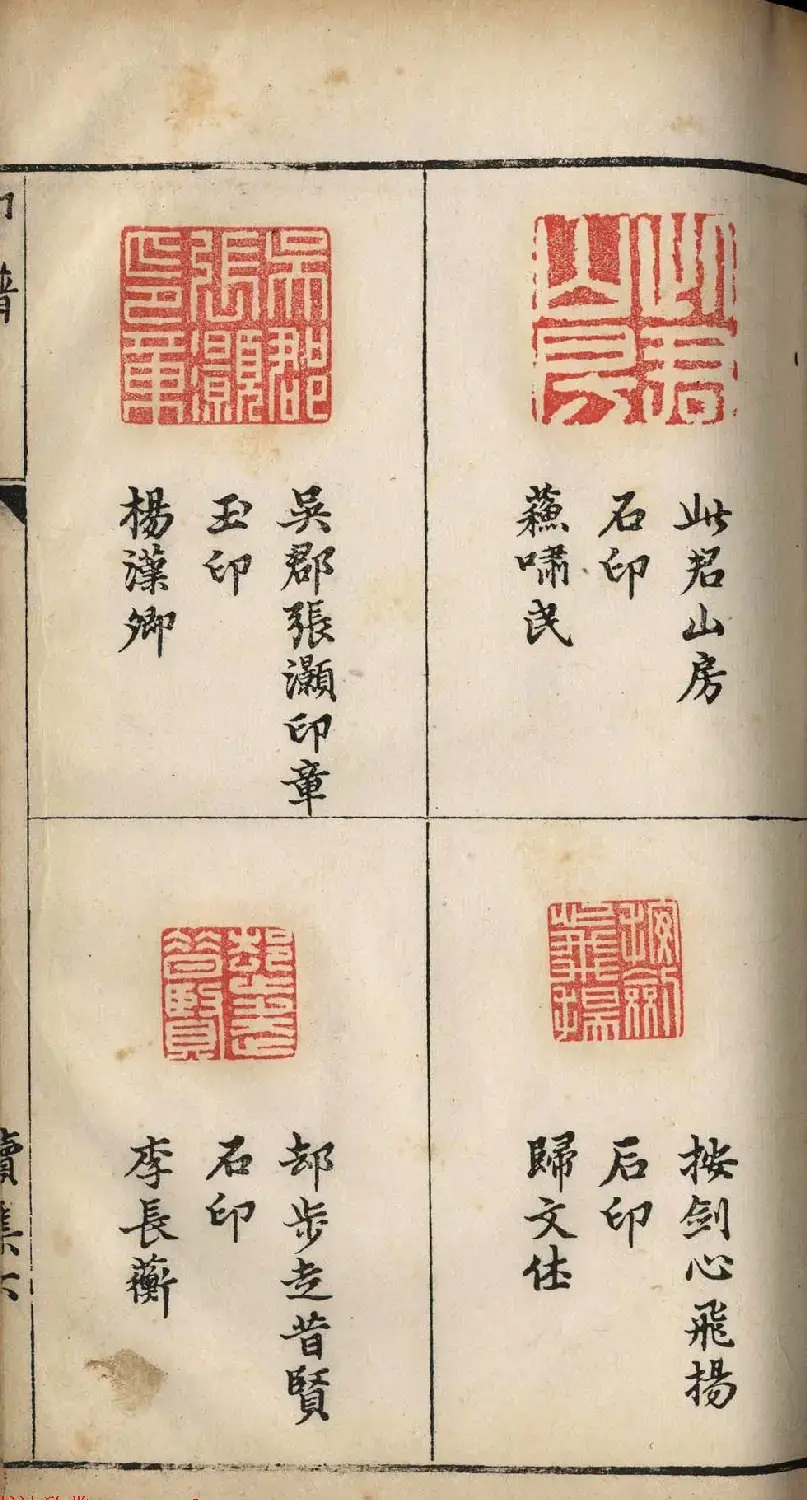 此君山房
石印
蘓嘯民
吳郡張灝印章
玉印
楊漢卿
按劍心飛揚
石印
歸文休
却步走昔賢
石印
李長蘅
印譜
續集六